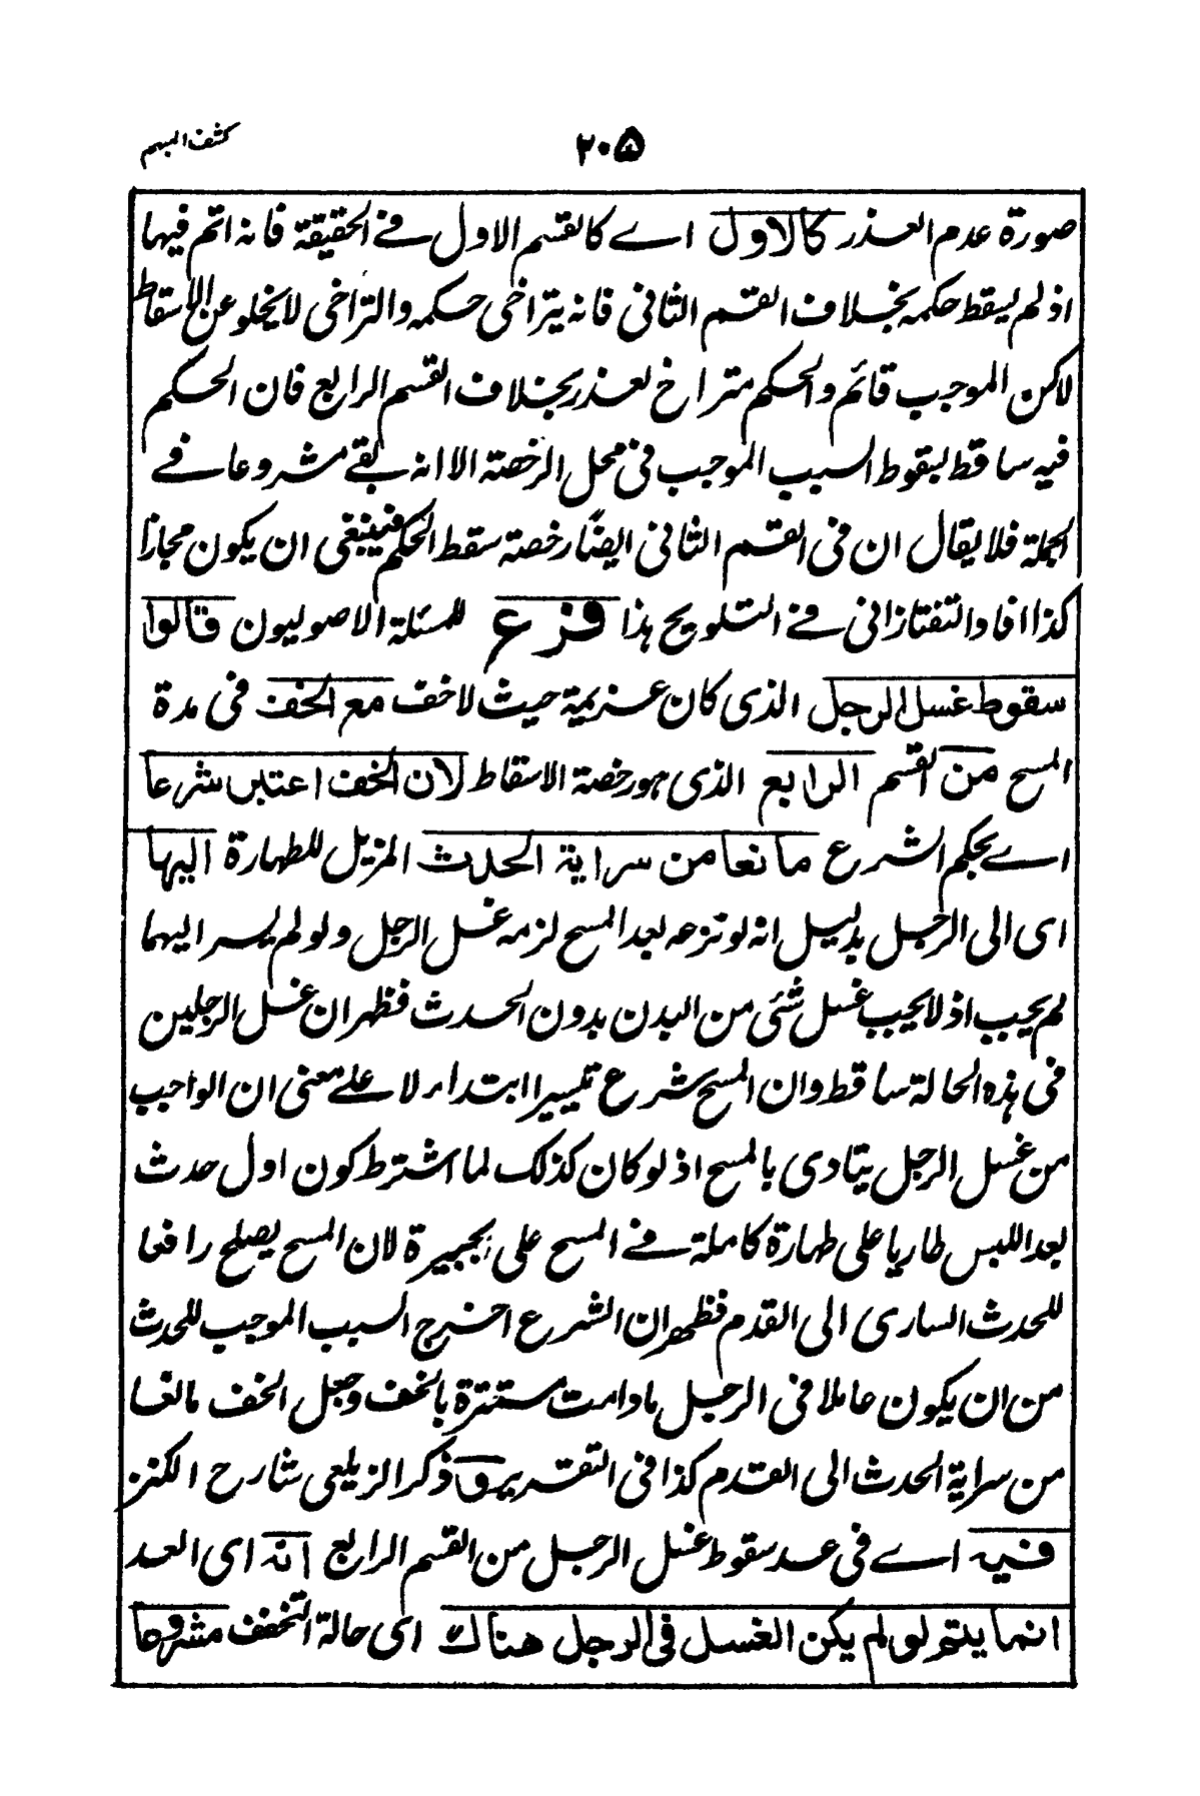 كشف المبهم
٢٠٥
صورة عدم العذر كالاول اے كالقسم الاول فے الحقيقة فانه اتم فيها
اذ لم يسقط حكمه بخلاف القسم الثانی فانه يتراخی حكمه والتراخی لا يخلو عن الاسقاط
لاكن الموجب قائم والحكم متراخ لعذر بخلاف القسم الرابع فان الحكم
فيه ساقط بسقوط السبب الموجب فی محل الرخصة الا انه بقے مشروعا فے
الجملة فلا يقال ان فی القسم الثانی ايضًا رخصة سقط الحكم فينبغی ان يكون مجازا
كذا افاد التفتازانی فے التلويح هذا فرع للمسئلة الاصوليون قالوا
سقوط غسل الرجل الذی كان عزيمة حيث لا خف مع الخف فی مدة
المسح من القسم الرابع الذی هو رخصة الاسقاط لان الخف اعتبر شرعا
اے بحكم الشرع مانعا من سراية الحدث المزيل للطهارة اليها
ای الی الرجل بدليل انه لو نزعه بعد المسح لزمه غسل الرجل ولو لم يسر اليهما
لم يجب اذ لا يجب غسل شئی من البدن بدون الحدث فظهر ان غسل الرجلين
فی هذه الحالة ساقط وان المسح شرع تيسيرا ابتداء لا علے معنی ان الواجب
من غسل الرجل يتادی بالمسح اذ لو كان كذلك لما اشترط كون اول حدث
بعد اللبس طاريا علی طهارة كاملة فے المسح علی الجبيرة لان المسح يصلح رافعا
للحدث الساری الی القدم فظهر ان الشرع اخرج السبب الموجب للحدث
من ان يكون عاملا فی الرجل مادامت مستترة بالخف وجعل الخف مانعا
من سراية الحدث الی القدم كذا فی التقرير ق ذكر الزيلعی شارح الكنز
فيه اے فی عد سقوط غسل الرجل من القسم الرابع انه ای العد
انما يتم لو لم يكن الغسل فی الرجل هناك ای حالة التخفف مشروعا